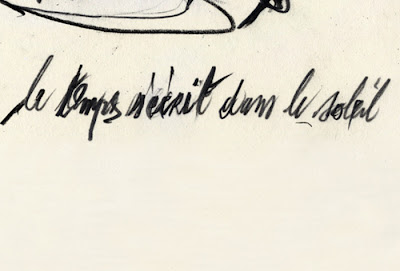 le temps s'écrit dans le soleil